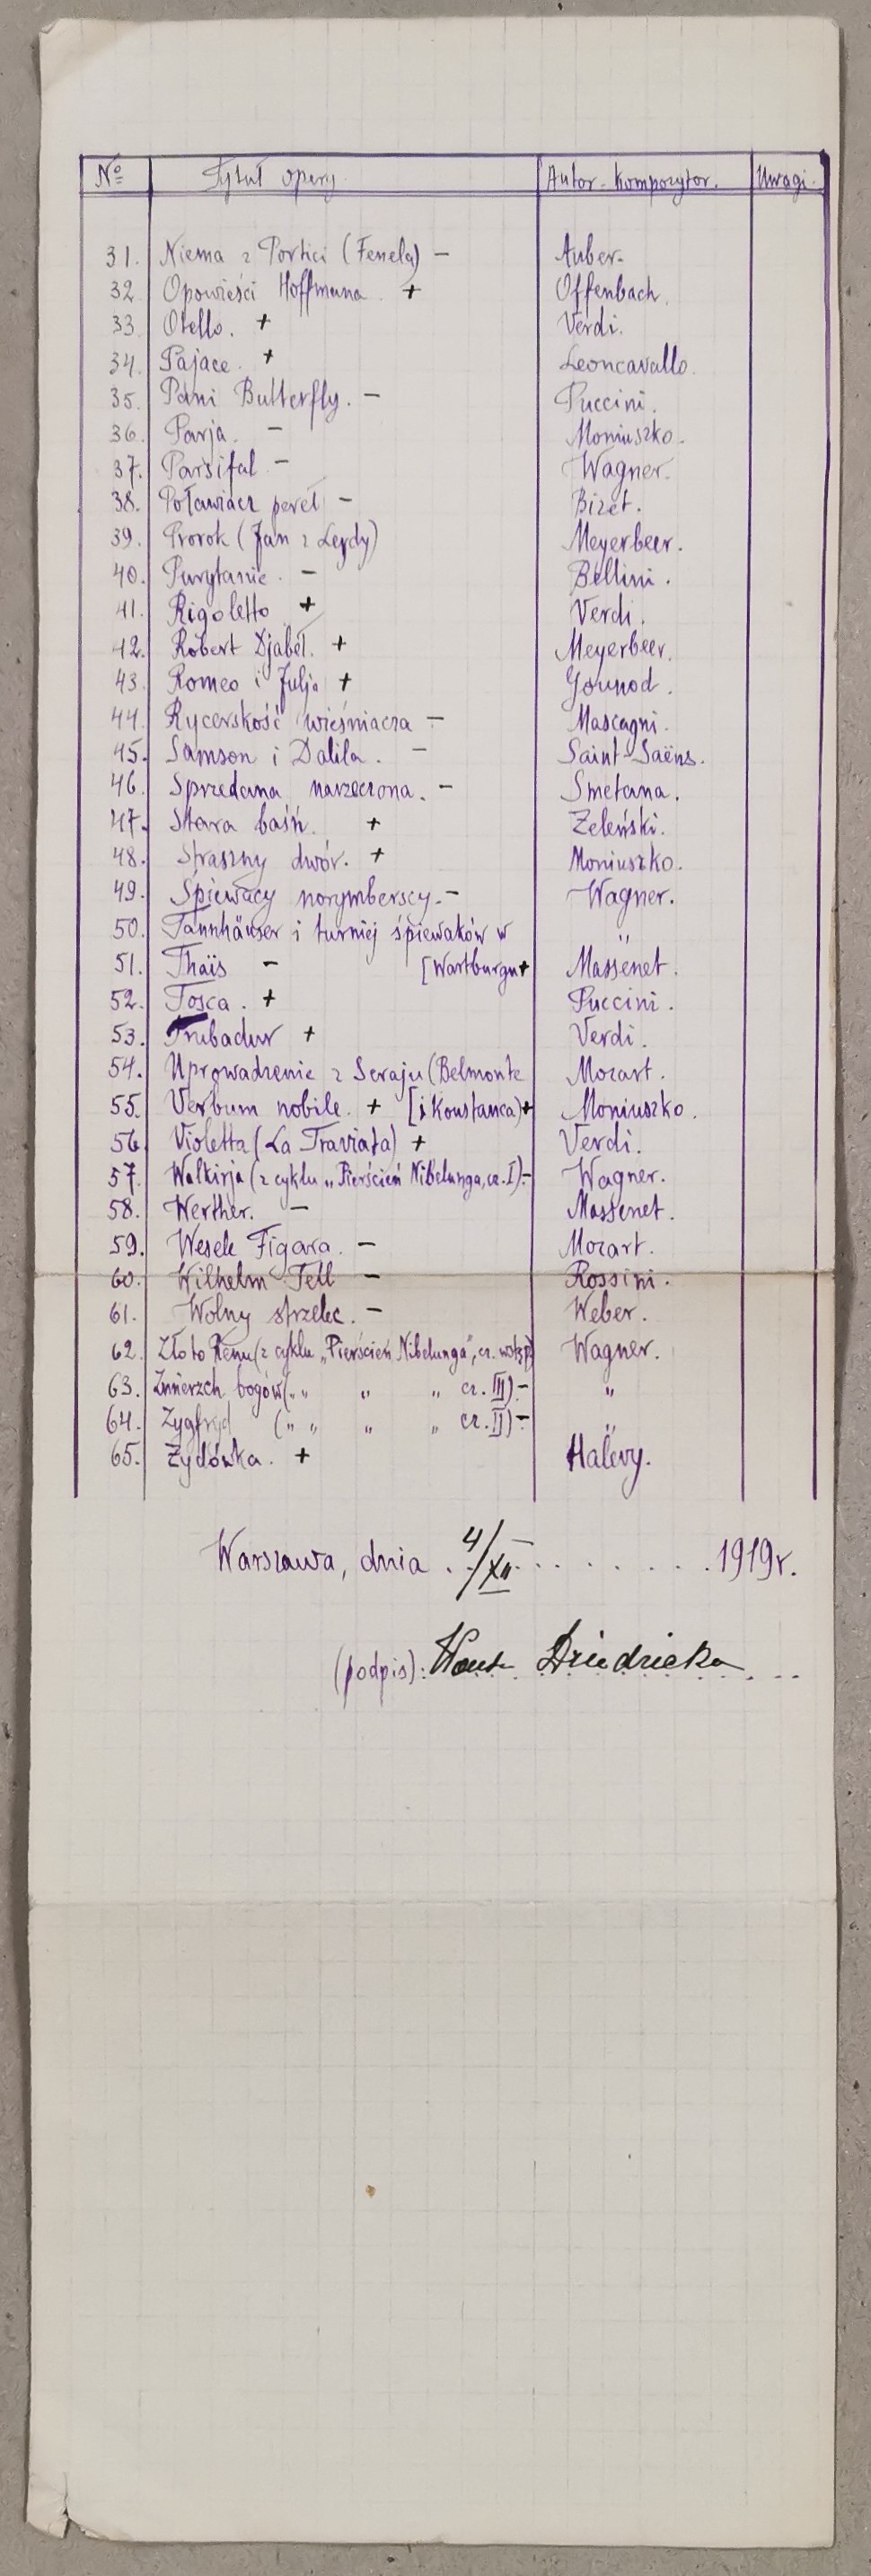 № Tytuł opery. Autor-kompozytor. Uwagi.
31. Niema z Portici (Fenela) — Auber.
32. Opowieści Hoffmana. + Offenbach.
33. Otello. + Verdi.
34. Pajace. + Leoncavallo.
35. Pani Butterfly. — Puccini.
36. Parja. — Moniuszko.
37. Parsifal — Wagner.
38. Poławiacz pereł — Bizet.
39. Prorok (Jan z Leydy) Meyerbeer.
40. Purytanie. — Bellini.
41. Rigoletto + Verdi.
42. Robert Djabeł. + Meyerbeer.
43. Romeo i Julja + Gounod.
44. Rycerskość wieśniacza — Mascagni.
45. Samson i Dalila. — Saint-Saëns.
46. Sprzedana narzeczona. — Smetana.
47. Stara baśń. + Żeleński.
48. Straszny dwór. + Moniuszko.
49. Śpiewacy norymberscy. — Wagner.
50. Tannhäuser i turniej śpiewaków w "
51. Thaïs — [Wartburgu + Massenet.
52. Tosca. + Puccini.
53. Trubadur + Verdi.
54. Uprowadzenie z Seraju (Belmonte Mozart.
55. Verbum nobile. + [i Konstanca) + Moniuszko.
56. Violetta (La Traviata) + Verdi.
57. Walkirja (z cyklu „Pierścień Nibelunga, cz. I). — Wagner.
58. Werther. — Massenet.
59. Wesele Figara. — Mozart.
60. Wilhelm Tell — Rossini.
61. Wolny strzelec. — Weber.
62. Złoto Renu (z cyklu „Pierścień Nibelunga", cz. wstęp) Wagner.
63. Zmierzch bogów („ " " " cz. III). — "
64. Zygfryd („ " " " cz. II) — "
65. Żydówka. + Halévy.
Warszawa, dnia 4/XII 1919r.
(podpis): Dziedzicka